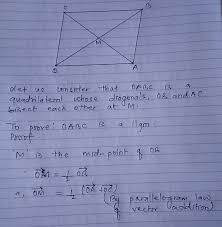 C
B
M
O
A
Let us consider that OABC is a
quadrilateral whose diagonals, OB and AC
bisect each other at M.
To prove OABC is a ||gm
Proof
M is the mid-point of OB
OM⃗ = 1/2 OB⃗
=
(By parallelogram law
of vector addition)